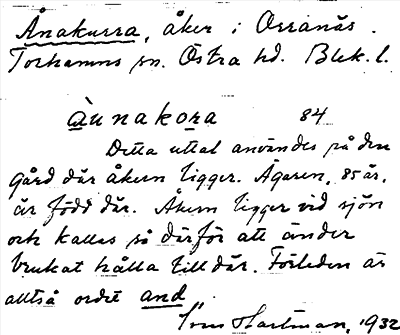 Ånakurra, åker i Orranäs.
Torhamns sn. Östra hd. Blek. l.
àunakora 84
Detta uttal användes på den
gård där åkern ligger. Ägaren, 85 år,
är född där. Åkern ligger vid sjön
och kallas så därför att änder
brukat hålla till där. Förleden är
alltså ordet and.
Hartman, 1932